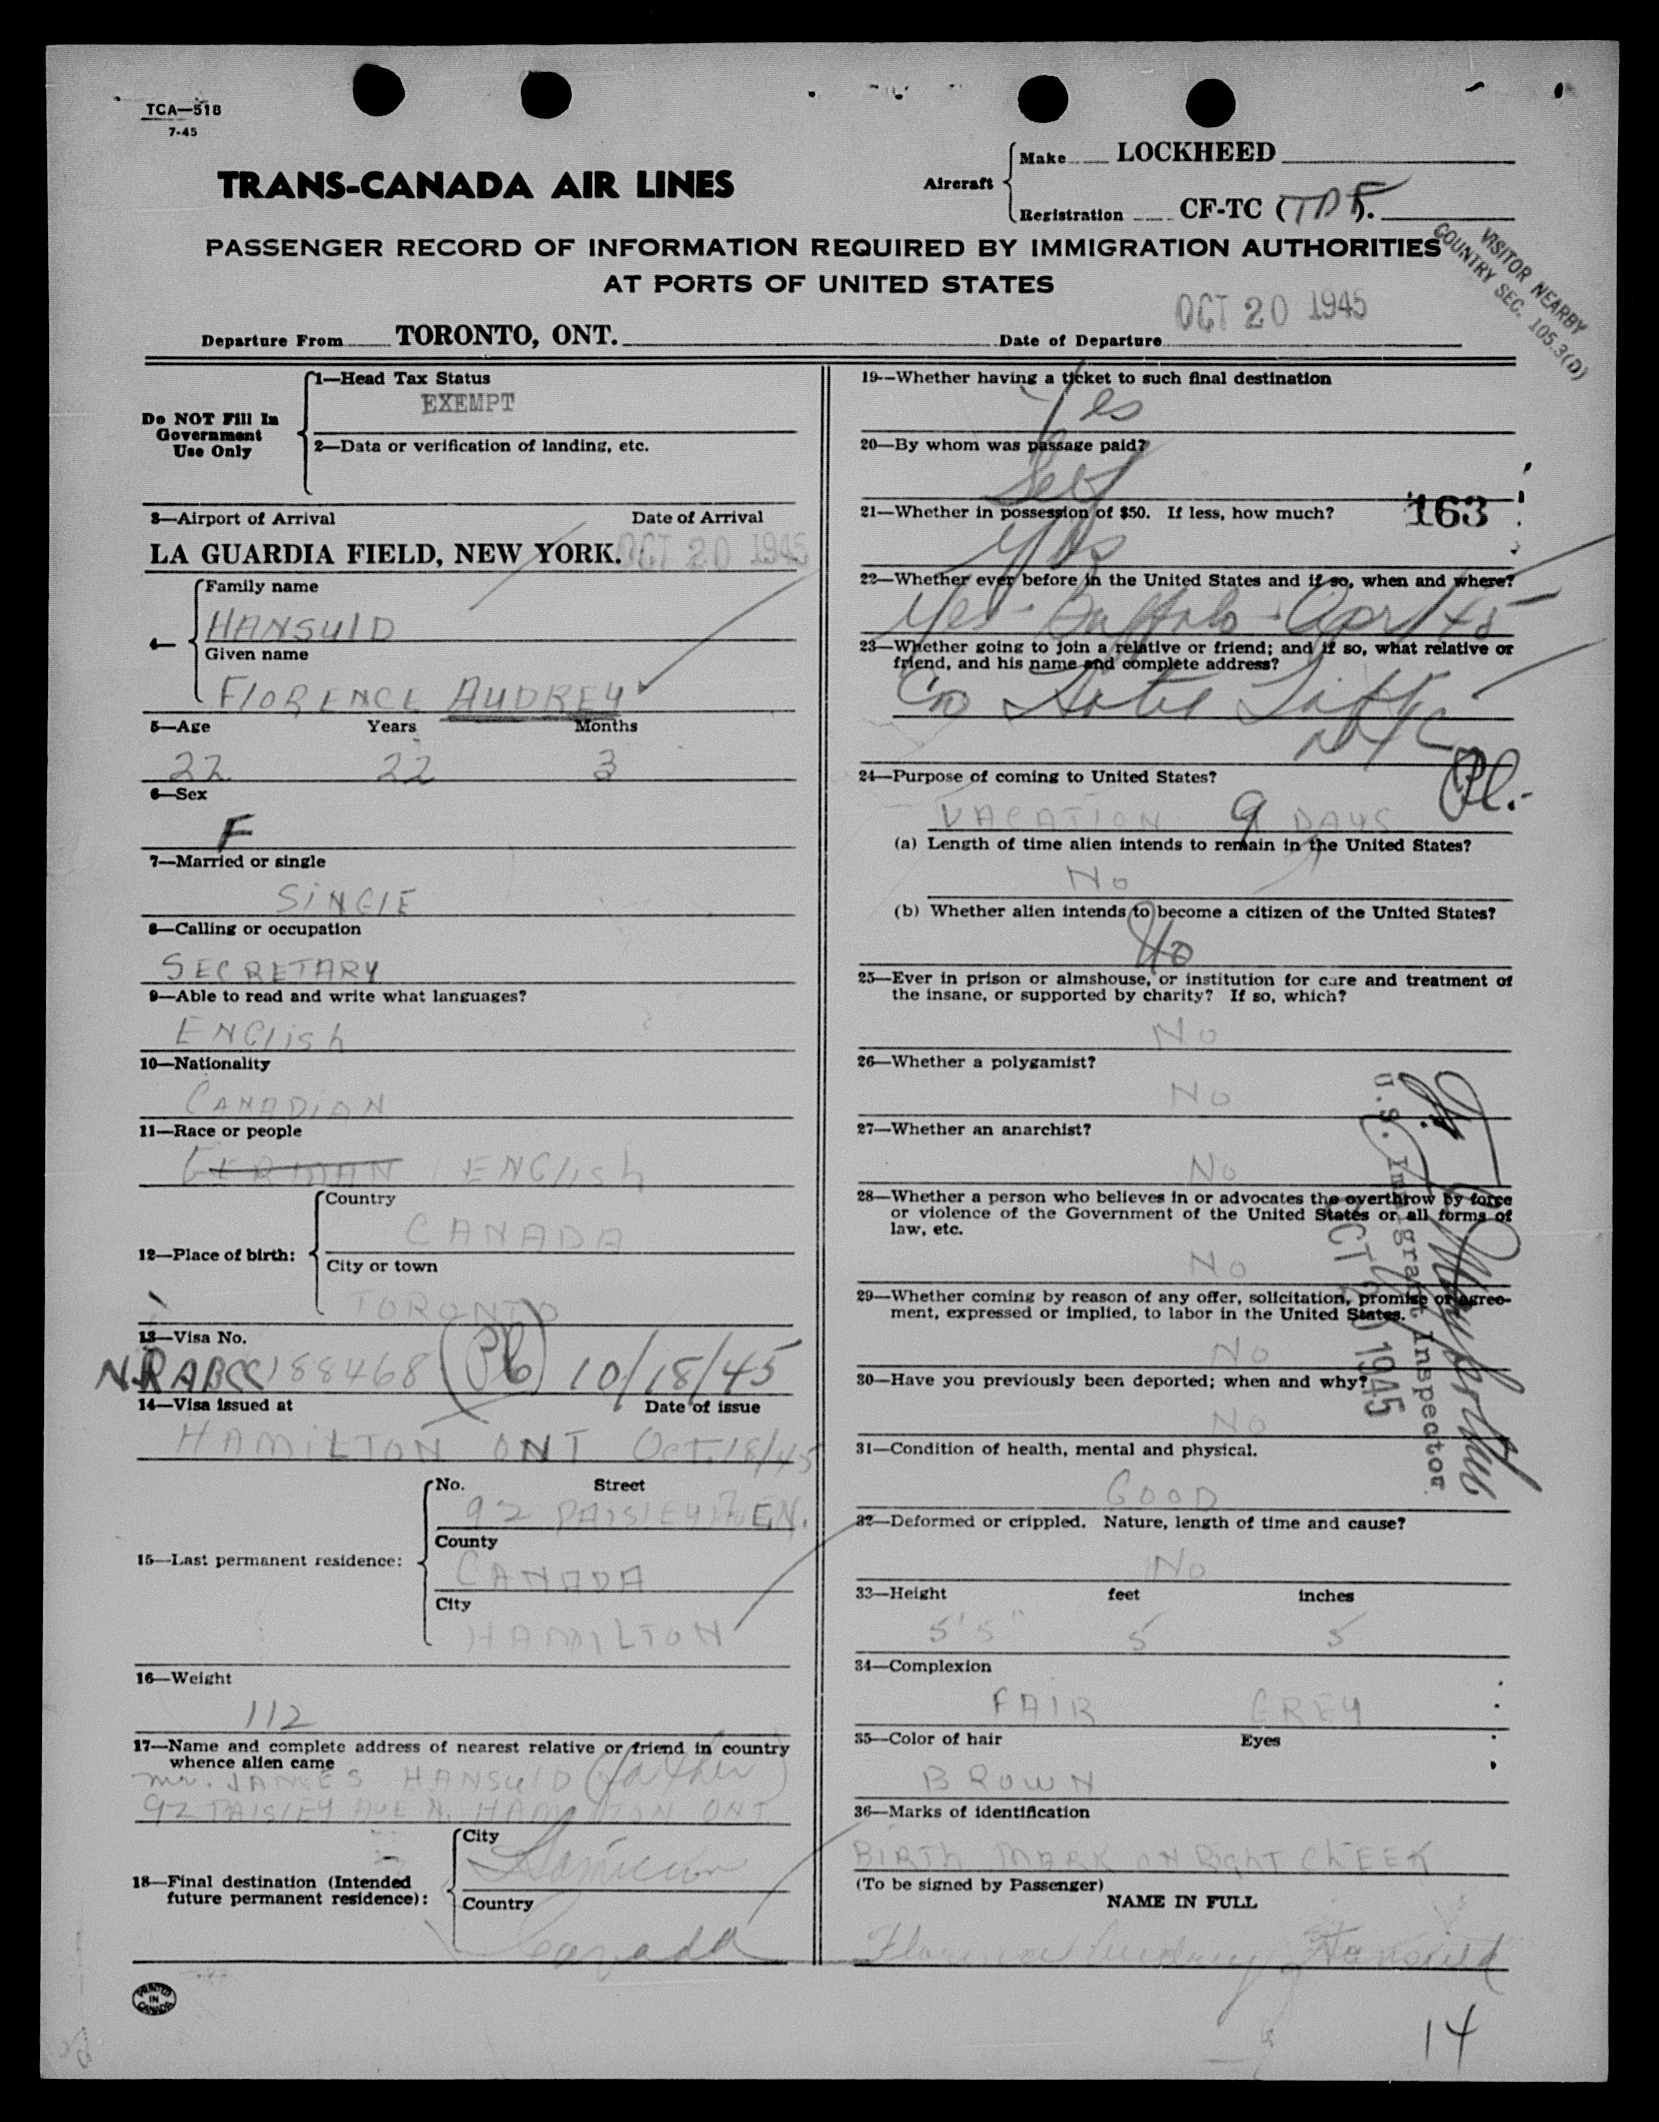 TCA—51B
7-45
TRANS-CANADA AIR LINES
Aircraft
Make LOCKHEED
Registration CF-TC (TDF).
PASSENGER RECORD OF INFORMATION REQUIRED BY IMMIGRATION AUTHORITIES
AT PORTS OF UNITED STATES
VISITOR NEARBY
COUNTRY SEC. 105.3(D)
Departure From TORONTO, ONT.
Date of Departure OCT 20 1945
Do NOT Fill In
Government
Use Only
1—Head Tax Status
EXEMPT
2—Data or verification of landing, etc.
3—Airport of Arrival Date of Arrival
LA GUARDIA FIELD, NEW YORK. OCT 20 1945
4—
Family name
HANSULD
Given name
FLORENCE AUDREY
5—Age Years Months
22 22 3
6—Sex
F
7—Married or single
SiNGlE
8—Calling or occupation
SECRETARY
9—Able to read and write what languages?
ENGlish
10—Nationality
CANADIAN
11—Race or people
GERMAN ENGlish
12—Place of birth:
Country
CANADA
City or town
TORONTO
13—Visa No.
188468 10/18/45
14—Visa issued at Date of issue
HAMiLTON ONT Oct.18/45
15—Last permanent residence:
No. Street
92 PAISLEY AVEN.
County
CANADA
City
HAMILTON
16—Weight
112
17—Name and complete address of nearest relative or friend in country
whence alien came
Mr. JAMES HANSULD (father)
92 PAISLEY AVE N. HAMILTON ONT.
18—Final destination (Intended
future permanent residence):
City
Hamilton
Country
Canada
PRINTED
IN
CANADA
19—Whether having a ticket to such final destination
Yes
20—By whom was passage paid?
Self
21—Whether in possession of $50. If less, how much?
163
Yes
22—Whether ever before in the United States and if so, when and where?
Yes - Buffalo - Apr/45
23—Whether going to join a relative or friend; and if so, what relative or
friend, and his name and complete address?
Hotel Taft
NYC
24—Purpose of coming to United States?
VACATION 9 DAYS
(a) Length of time alien intends to remain in the United States?
No
(b) Whether alien intends to become a citizen of the United States?
No
25—Ever in prison or almshouse, or institution for care and treatment of
the insane, or supported by charity? If so, which?
No
26—Whether a polygamist?
No
27—Whether an anarchist?
No
28—Whether a person who believes in or advocates the overthrow by force
or violence of the Government of the United States or all forms of
law, etc.
No
29—Whether coming by reason of any offer, solicitation, promise or agree-
ment, expressed or implied, to labor in the United States.
No
30—Have you previously been deported; when and why?
No
U.S. Immigrant Inspector
OCT 20 1945
31—Condition of health, mental and physical.
GOOD
32—Deformed or crippled. Nature, length of time and cause?
No
33—Height feet inches
5'5" 5 5
34—Complexion
FAIR GREY
35—Color of hair Eyes
BROWN
36—Marks of identification
BIRTh MARK ON RighT ChEEK
(To be signed by Passenger)
NAME IN FULL
Florence Audrey Hansuld
14